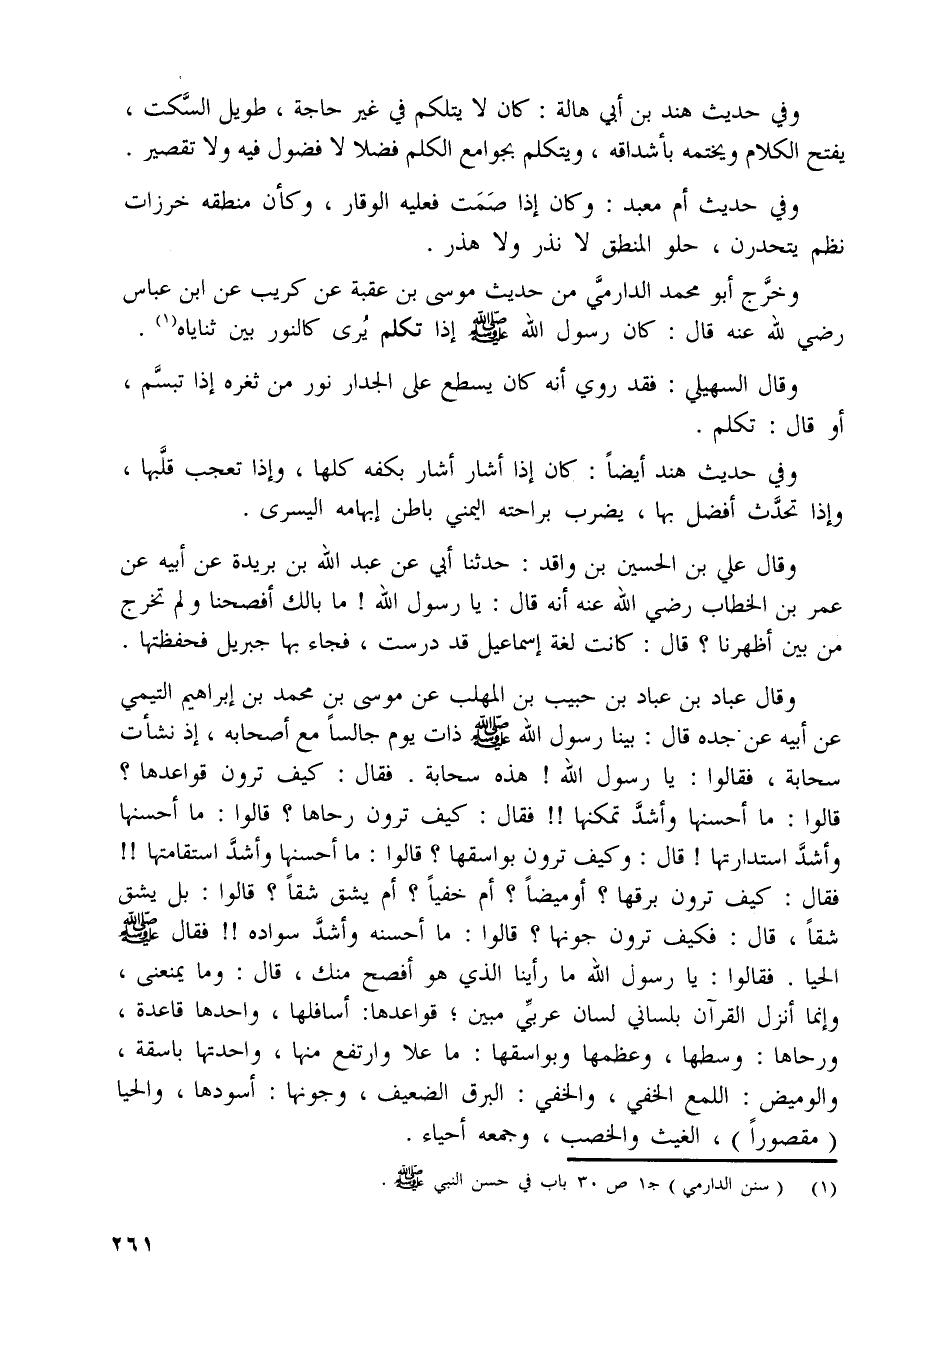 وفي حديث هند بن أبي هالة : كان لا يتلكم في غير حاجة ، طويل السَّكت ،
يفتح الكلام ويختمه بأشداقه ، ويتكلم بجوامع الكلم فضلا لا فضول فيه ولا تقصير .
وفي حديث أم معبد : وكان إذا صَمَت فعليه الوقار ، وكأن منطقه خرزات
نظم يتحدرن ، حلو المنطق لا نذر ولا هذر .
وخرَّج أبو محمد الدارميَّ من حديث موسى بن عقبة عن كريب عن ابن عباس
رضي لله عنه قال : كان رسول الله ﷺ إذا تكلم يُرى كالنور بين ثناياه(١) .
وقال السهيلي : فقد روي أنه كان يسطع على الجدار نور من ثغره إذا تبسَّم ،
أو قال : تكلم .
وفي حديث هند أيضاً : كان إذا أشار أشار بكفه كلها ، وإذا تعجب قلَّبها ،
وإذا تحدَّث أفضل بها ، يضرب براحته اليمني باطن إبهامه اليسرى .
وقال علي بن الحسين بن واقد : حدثنا أبي عن عبد الله بن بريدة عن أبيه عن
عمر بن الخطاب رضي الله عنه أنه قال : يا رسول الله ! ما بالك أفصحنا ولم تخرج
من بين أظهرنا ؟ قال : كانت لغة إسماعيل قد درست ، فجاء بها جبريل فحفظتها .
وقال عباد بن عباد بن حبيب بن المهلب عن موسى بن محمد بن إبراهيم التيمي
عن أبيه عن جده قال : بينا رسول الله ﷺ ذات يوم جالساً مع أصحابه ، إذ نشأت
سحابة ، فقالوا : يا رسول الله ! هذه سحابة . فقال : كيف ترون قواعدها ؟
قالوا : ما أحسنها وأشدَّ تمكنها !! فقال : كيف ترون رحاها ؟ قالوا : ما أحسنها
وأشدَّ استدارتها ! قال : وكيف ترون بواسقها ؟ قالوا : ما أحسنها وأشدَّ استقامتها !!
فقال : كيف ترون برقها ؟ أوميضاً ؟ أم خفياً ؟ أم يشق شقاً ؟ قالوا : بل يشق
شقاً ، قال : فكيف ترون جونها ؟ قالوا : ما أحسنه وأشدَّ سواده !! فقال ﷺ
الحيا . فقالوا : يا رسول الله ما رأينا الذي هو أفصح منك ، قال : وما يمنعنى ،
وإنما أنزل القرآن بلساني لسان عربيِّ مبين ؛ قواعدها: أسافلها ، واحدها قاعدة ،
ورحاها : وسطها ، وعظمها وبواسقها : ما علا وارتفع منها ، واحدتها باسقة ،
والوميض : اللمع الخفي ، والخفي : البرق الضعيف ، وجونها : أسودها ، والحيا
( مقصوراً ) ، الغيث والخصب ، وجمعه أحياء .
(١) ( سنن الدارمي ) جـ١ ص ٣٠ باب في حسن النبي ﷺ .
٢٦١